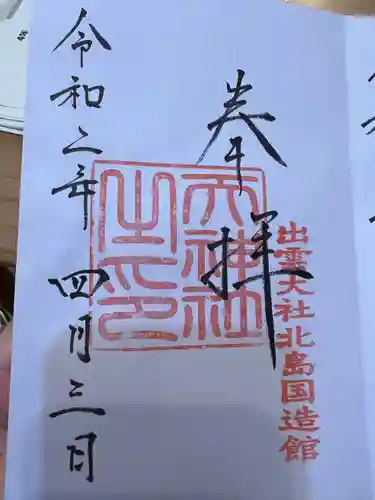 奉拝
出雲大社北島国造館
天神社之印
令和二年四月三日